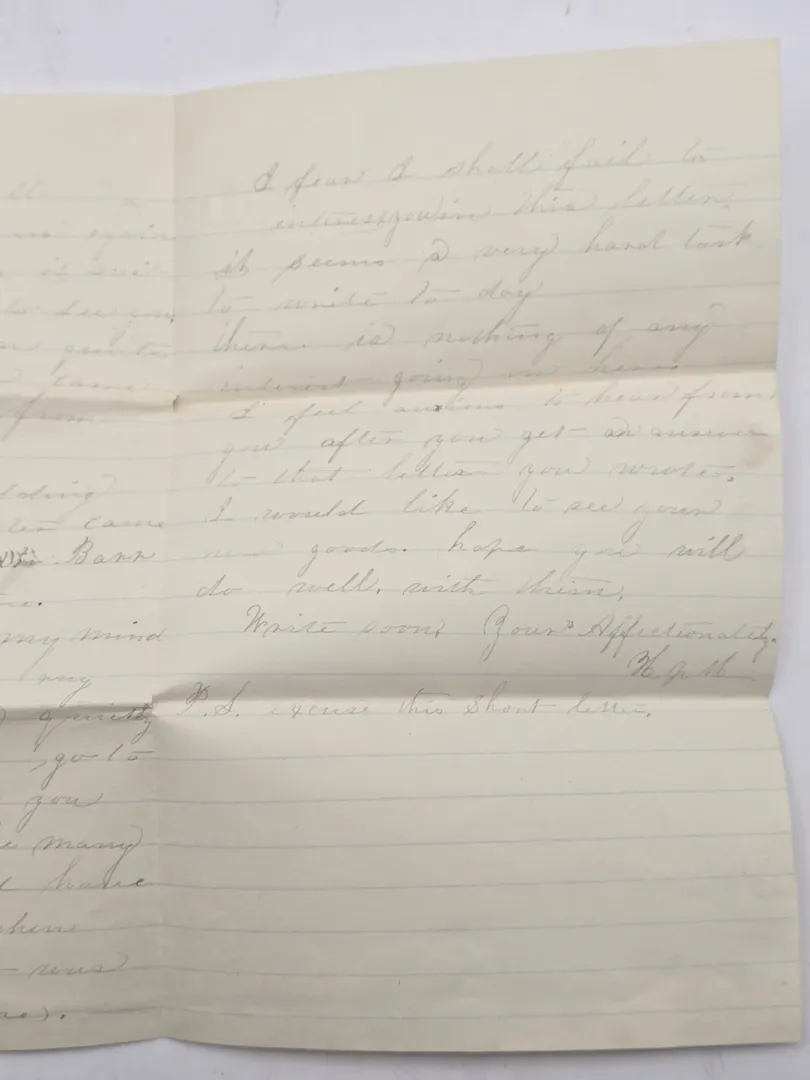 again
it
to see you
came
from
came
Barn
my mind
any
quietly
go to
you
many
have
when
was
I fear I shall fail to
interest you in this letter.
it seems a very hard task
to write to day
there is nothing of any
interest going on here
I feel anxious to hear from
you after you get an answer
to that letter you wrote.
I would like to see your
new goods. hope you will
do well, with them.
Write soon. Yours Affectionately.
P.S. excuse this short letter.